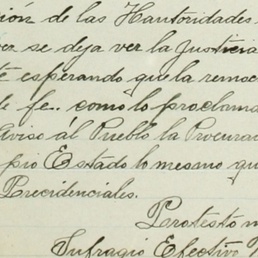 ción de las Hautoridades
vez se deja ver la Justicia
te esperando que la remoc
de fe.. como lo proclama
Aviso al Pueblo la Procura
pio Estado lo mesmo qu
Precidenciales.
Protesto m
Sufragio Efectivo N